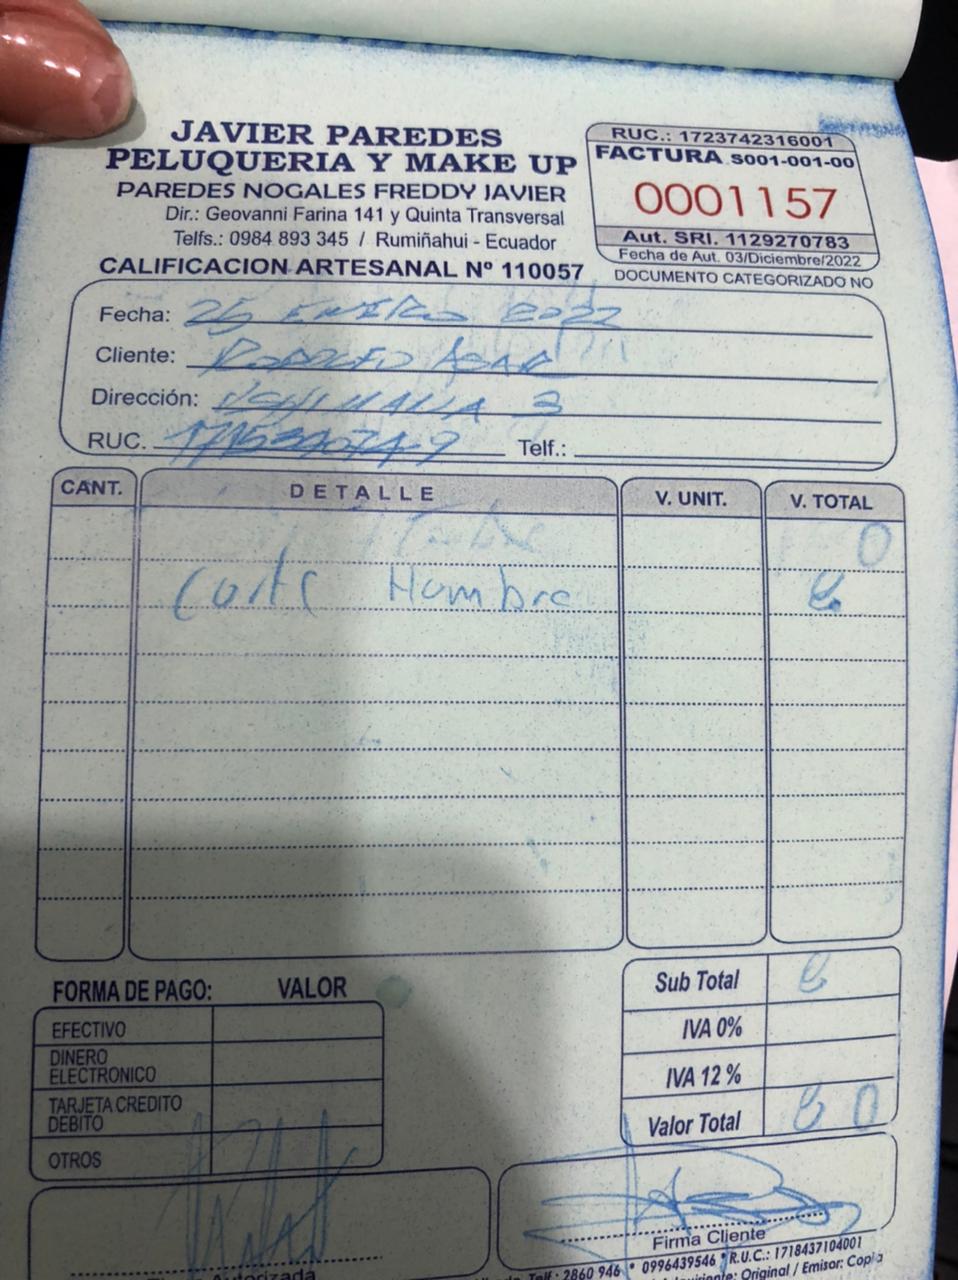 JAVIER PAREDES
PELUQUERIA Y MAKE UP
PAREDES NOGALES FREDDY JAVIER
Dir.: Geovanni Farina 141 y Quinta Transversal
Telfs.: 0984 893 345 / Rumiñahui - Ecuador
CALIFICACION ARTESANAL Nº 110057
RUC.: 1723742316001
FACTURA S001-001-00
0001157
Aut. SRI. 1129270783
Fecha de Aut. 03/Diciembre/2022
DOCUMENTO CATEGORIZADO NO
Fecha: 25 ENERO 2022
Cliente: RODOLFO
Dirección: 3
RUC. Telf.:
CANT. DETALLE V. UNIT. V. TOTAL
0
Corte Hombre 8
FORMA DE PAGO: VALOR
EFECTIVO
DINERO
ELECTRONICO
TARJETA CREDITO
DEBITO
OTROS
Sub Total 8
IVA 0%
IVA 12 %
Valor Total 8 0
Autorizada
Firma Cliente
Telf.: 2860 946 * 0996439546 * R.U.C.: 1718437104001
Original / Emisor: Copia